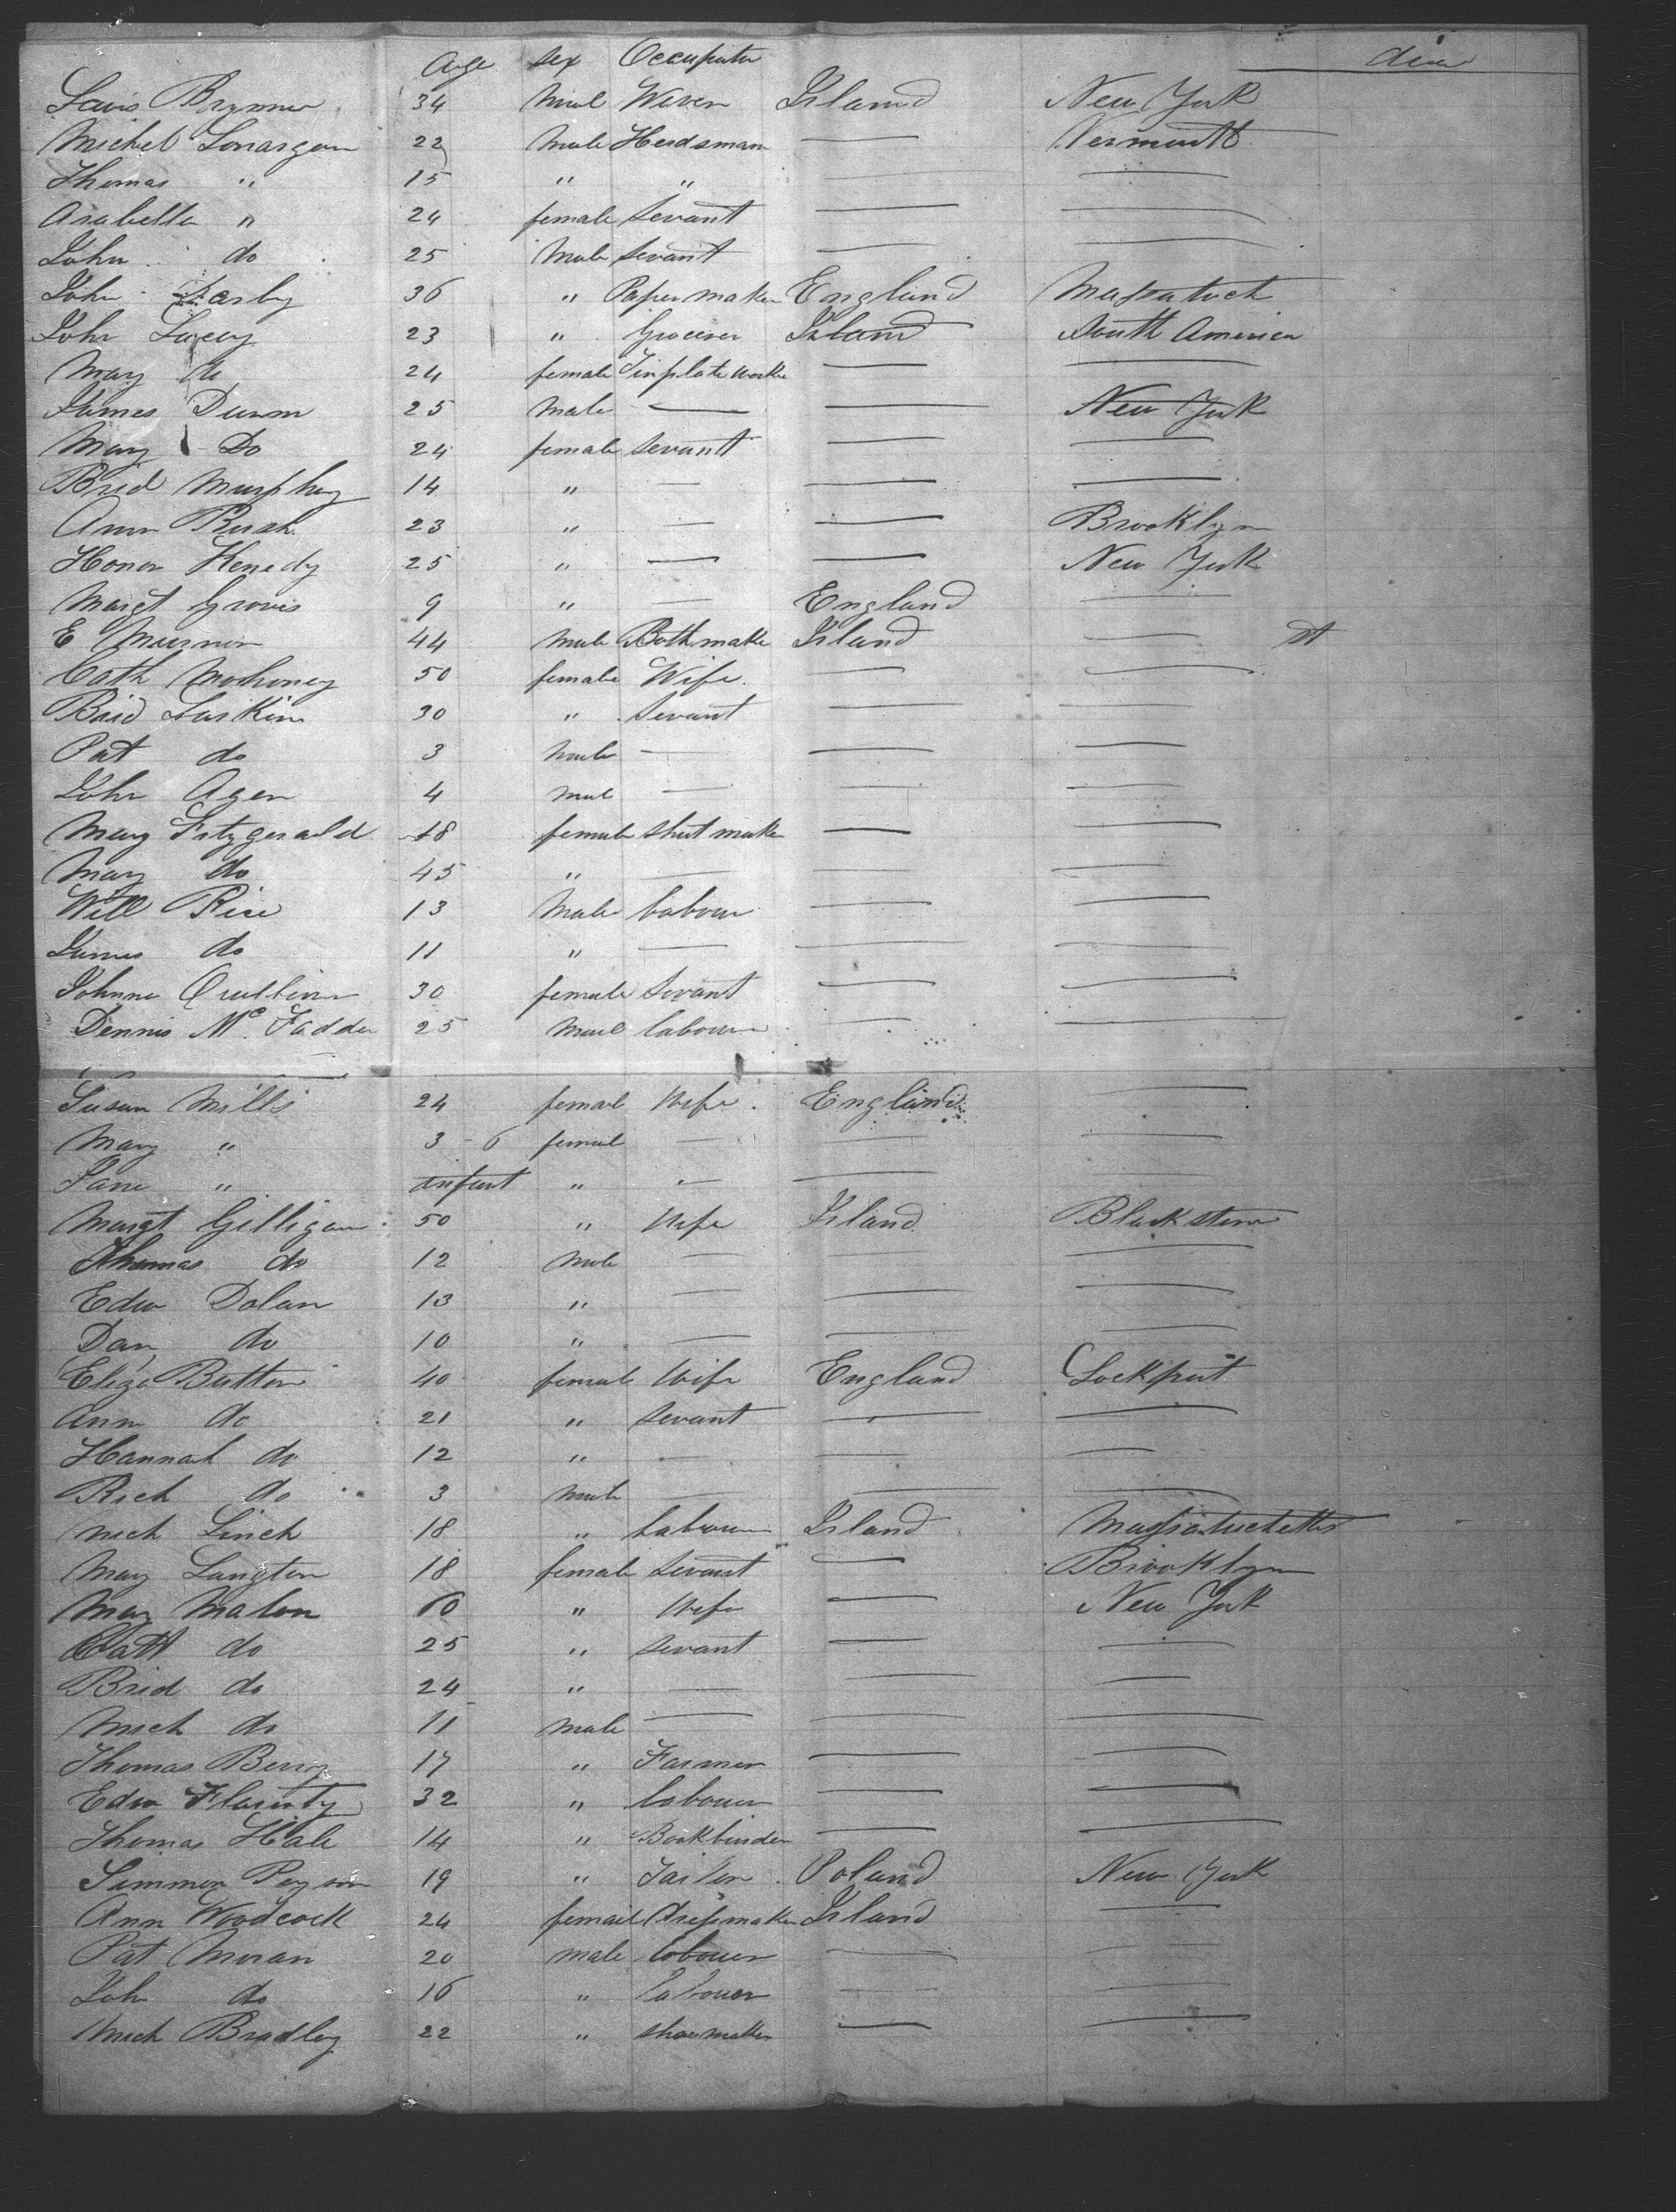 Age sex Occupater died
Lawis Brymner 34 Male Waver Island New York
Michel Lonargan 22 Male Herdsman — Vermontt
Thomas " 15 " " —
Arabella " 24 female Servant — —
John do 25 Male Servant — —
John Darby 36 " Paper maker England
John Lacey 23 " Grocerer Island South America
Mary do 24 female Tinplate worker — —
James Dunn 25 Male — — New York
Mary Do 24 female Servant — —
Brid Murphy 14 " — — —
Ann Rush 23 " — — Brooklyn
Honor Kenedy 25 " — — New York
Margt Groves 9 " — England —
E 44 Male Island —
Cath Mohoney 50 female Wife — —
Brid Larkin 30 " Servant — —
Pat do 3 Male — — —
John Agen 4 Male — — —
Mary Fitzgerald 18 female Shirt maker — —
Mary do 45 " — — —
Will Rice 13 Male labour — —
James do 11 " — — —
Johnne Quilivan 30 female Servant — —
Dennis Mc Fadder 25 Male labourer — —
Susan Mills 24 female Wife England —
Mary " 3-6 female — — —
Jane " infant " — — —
Margt Gilligan 50 " Wife Island Blackstone
Thomas do 12 Male — —
Edw Dolan 13 " — — —
Dan do 10 " — — —
Eliza Button 40 female Wife England Lockport
Ann do 21 " Servant — —
Hannah do 12 " — — —
Rich do 3 Male — — —
Mich Linch 18 " labourer Island Massatuchetts
Mary Langton 18 female Servant — Brooklyn
Mary Malon 60 " Wife — New York
Catt do 25 " Servant — —
Brid do 24 " — — —
Mich do 11 male — — —
Thomas Berry 17 " Farmer — —
Edw Flarity 32 " labourer — —
Thomas Hale 14 " Bookbinder — —
Simmon Peyson 19 " Tailor Poland New York
Ann Woodcock 24 female dressmaker Island —
Pat Moran 20 male labouer — —
John do 16 " labouer — —
Mich Bradley 22 " shoemaker — —